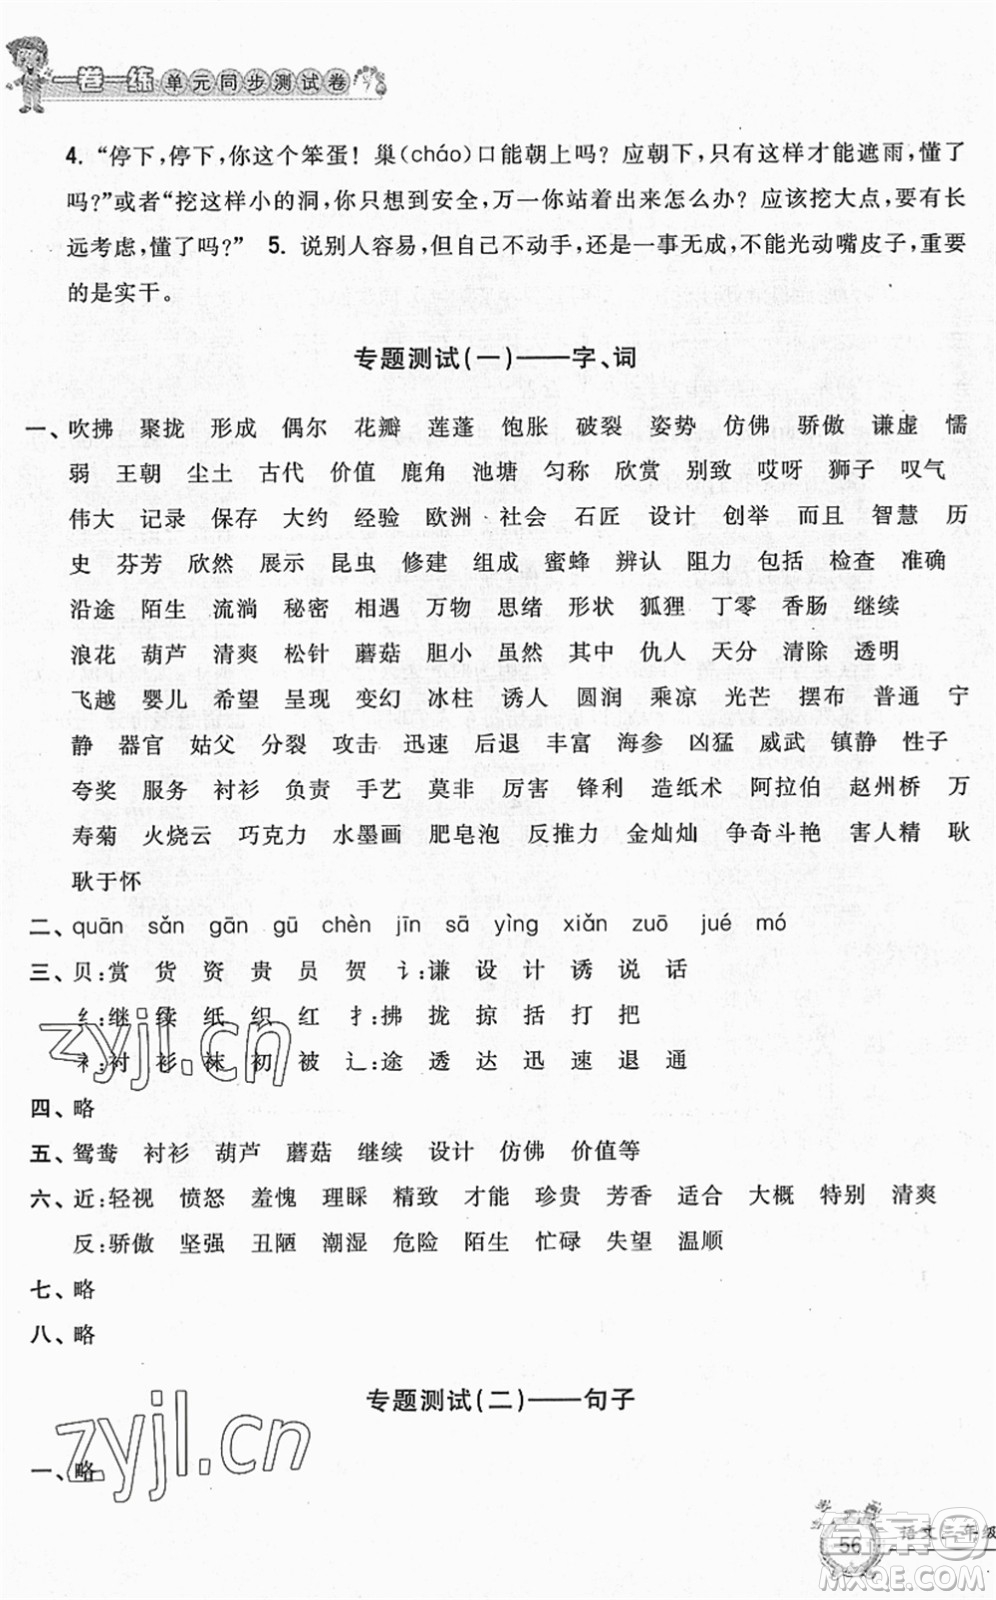 一卷一练单元同步测试卷
4. “停下,停下,你这个笨蛋! 巢(cháo)口能朝上吗? 应朝下,只有这样才能遮雨,懂了
吗?”或者“挖这样小的洞,你只想到安全,万一你站着出来怎么办? 应该挖大点,要有长
远考虑,懂了吗?” 5. 说别人容易,但自己不动手,还是一事无成,不能光动嘴皮子,重要
的是实干。
专题测试(一)——字、词
一、吹拂 聚拢 形成 偶尔 花瓣 莲蓬 饱胀 破裂 姿势 仿佛 骄傲 谦虚 懦
弱 王朝 尘土 古代 价值 鹿角 池塘 匀称 欣赏 别致 哎呀 狮子 叹气
伟大 记录 保存 大约 经验 欧洲 社会 石匠 设计 创举 而且 智慧 历
史 芬芳 欣然 展示 昆虫 修建 组成 蜜蜂 辨认 阻力 包括 检查 准确
沿途 陌生 流淌 秘密 相遇 万物 思绪 形状 狐狸 丁零 香肠 继续
浪花 葫芦 清爽 松针 蘑菇 胆小 虽然 其中 仇人 天分 清除 透明
飞越 婴儿 希望 呈现 变幻 冰柱 诱人 圆润 乘凉 光芒 摆布 普通 宁
静 器官 姑父 分裂 攻击 迅速 后退 丰富 海参 凶猛 威武 镇静 性子
夸奖 服务 衬衫 负责 手艺 莫非 厉害 锋利 造纸术 阿拉伯 赵州桥 万
寿菊 火烧云 巧克力 水墨画 肥皂泡 反推力 金灿灿 争奇斗艳 害人精 耿
耿于怀
二、quān sǎn gān gū chèn jīn sā yìng xiǎn zuō jué mó
三、贝:赏 货 资 贵 员 贺 讠:谦 设 计 诱 说 话
纟:继 续 纸 织 红 扌:拂 拢 掠 括 打 把
衤:衬 衫 袜 初 被 辶:途 透 达 迅 速 退 通
四、略
五、鸳鸯 衬衫 葫芦 蘑菇 继续 设计 仿佛 价值等
六、近:轻视 愤怒 羞愧 理睬 精致 才能 珍贵 芳香 适合 大概 特别 清爽
反:骄傲 坚强 丑陋 潮湿 危险 陌生 忙碌 失望 温顺
七、略
八、略
专题测试(二)——句子
一、略
zyjl.cn
zyjl.cn
56
语文三年级
答案圈
MXQE.COM